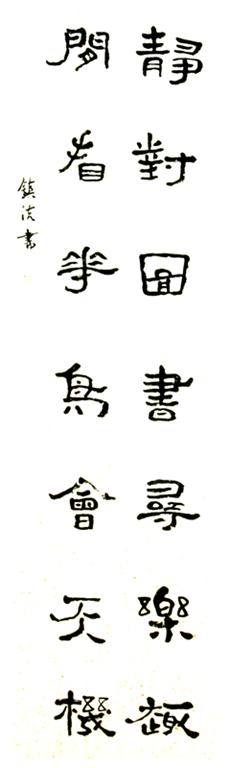 靜對圖書尋樂趣
閒看花鳥會天機
鎮淡書